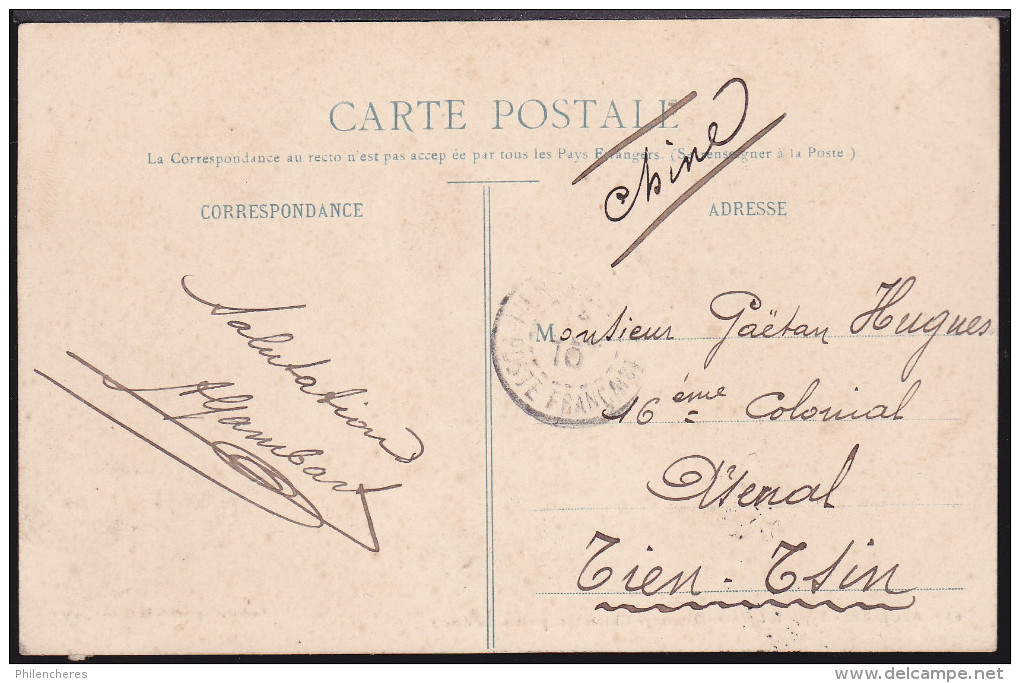 CARTE POSTALE
La Correspondance au recto n'est pas accep ée par tous les Pays Etrangers. (Se renseigner à la Poste)
Chine
CORRESPONDANCE
ADRESSE
Salutation
AGambart
Monsieur Gaëtan Hugues
16 ème Colonial
Arsenal
Tien-Tsin
10
POSTE FRANÇAISE
Philencheres
www.delcampe.net